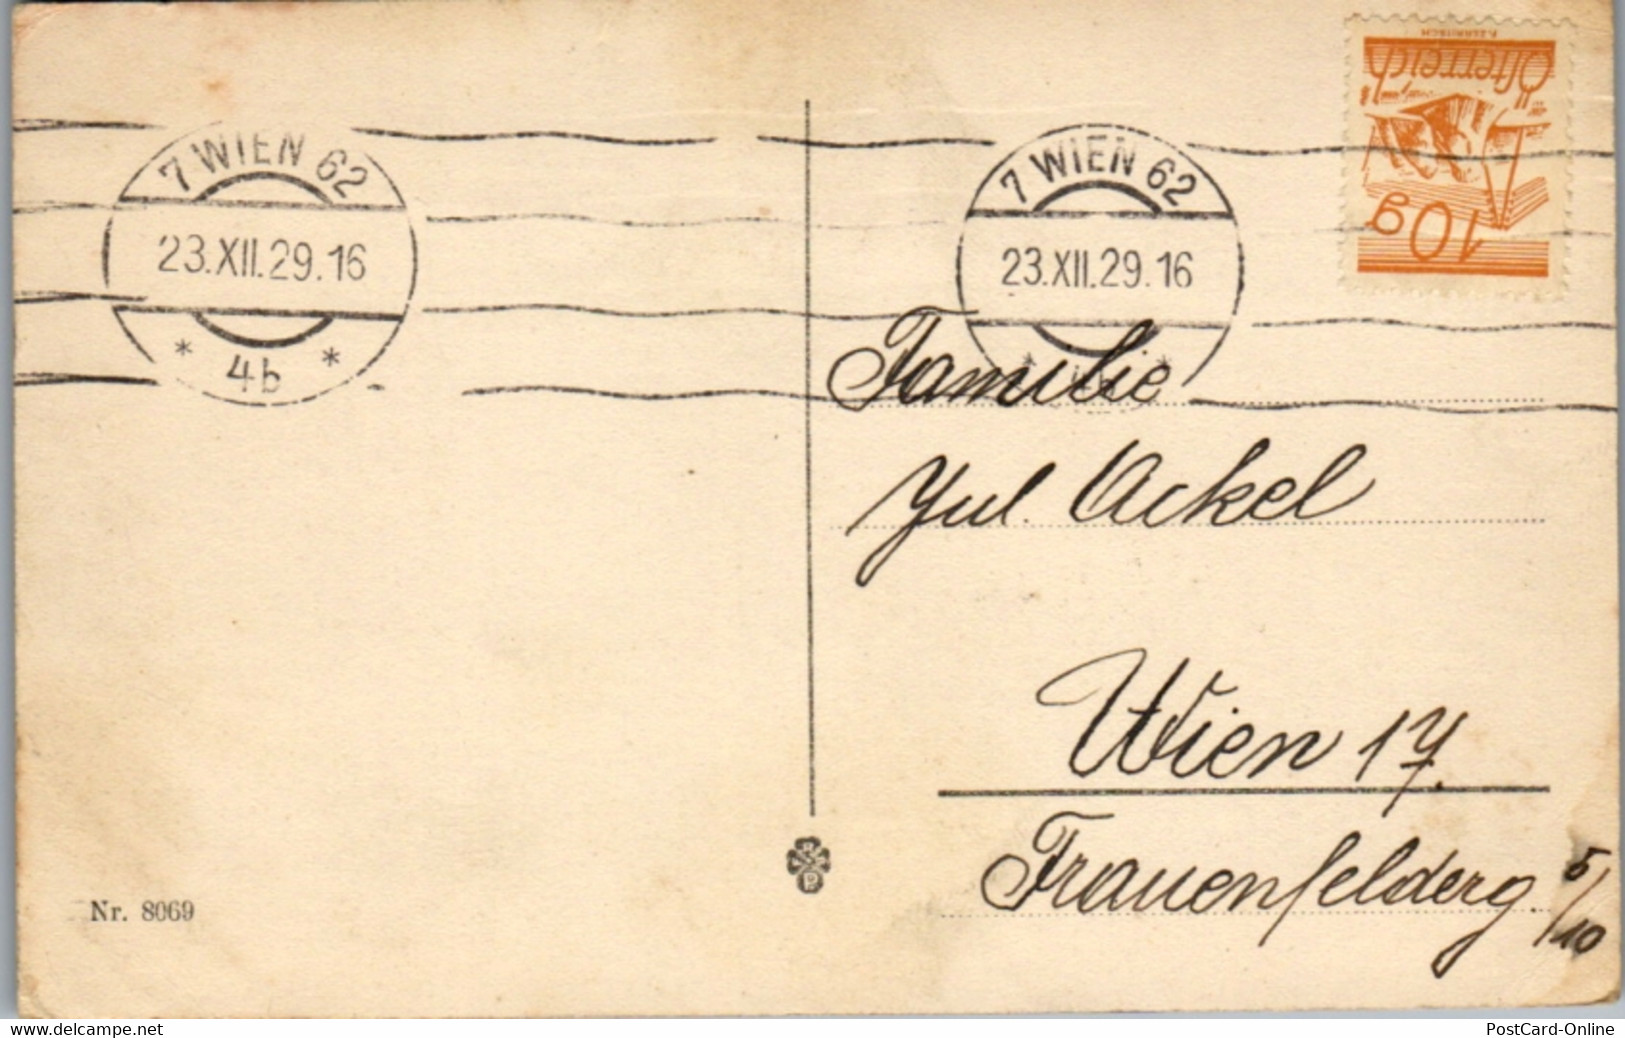 7 WIEN 62
23.XII.29.16
* 4b *
7 WIEN 62
23.XII.29.16
F. ZERRITSCH
Österreich
10g
Familie
Jul. Ackel
Wien 17.
Frauenfelderg. 5/10
Nr. 8069
www.delcampe.net
PostCard-Online